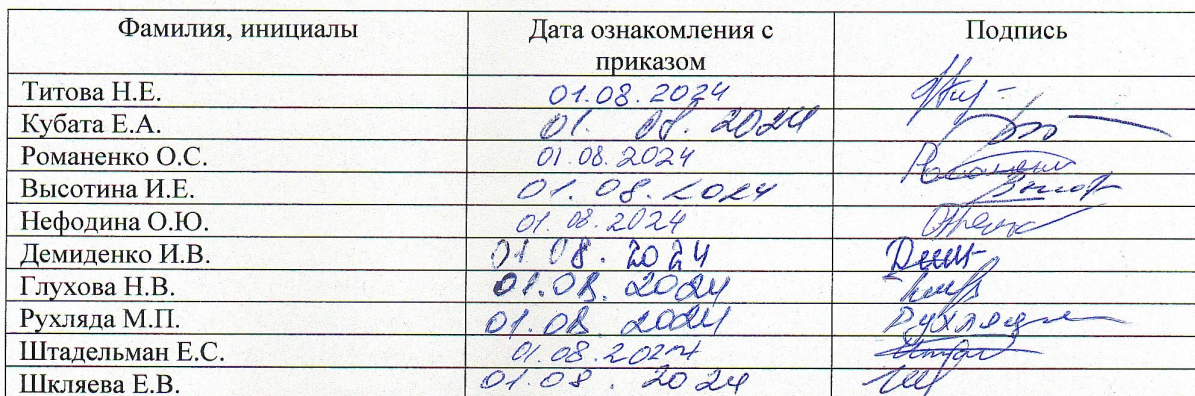 Фамилия, инициалы Дата ознакомления с приказом Подпись
Титова Н.Е. 01.08.2024
Кубата Е.А. 01. 08. 2024
Романенко О.С. 01.08.2024
Высотина И.Е. 01.08.2024
Нефодина О.Ю. 01.08.2024
Демиденко И.В. 01 08. 2024
Глухова Н.В. 01.08. 2024
Рухляда М.П. 01.08 2024 Рухляда
Штадельман Е.С. 01.08.2024
Шкляева Е.В. 01.08. 2024